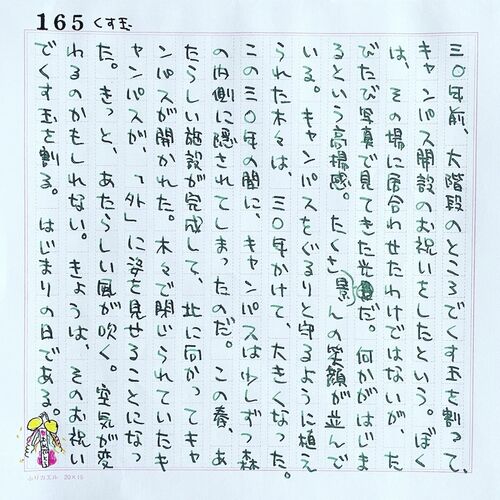 165 くす玉
三〇年前、大階段のところでくす玉を割って、
キャンパス開設のお祝いをしたという。ぼく
は、その場に居合わせたわけではないが、た
びたび写真で見てきた光景だ。何かがはじま
るという高揚感。たくさんの笑顔が並んで
いる。キャンパスをぐるりと守るように植え
られた木々は、三〇年かけて、大きくなった。
この三〇年の間に、キャンパスは少しずつ森
の内側に隠されてしまったのだ。この春、あ
たらしい施設が完成して、北に向かってキャ
ンパスが開かれた。木々で閉じられていたキ
ャンパスが、「外」に姿を見せることになっ
た。きっと、あたらしい風が吹く。空気が変
わるのかもしれない。きょうは、そのお祝い
でくす玉を割る。はじまりの日である。
ふりカエル 20×15